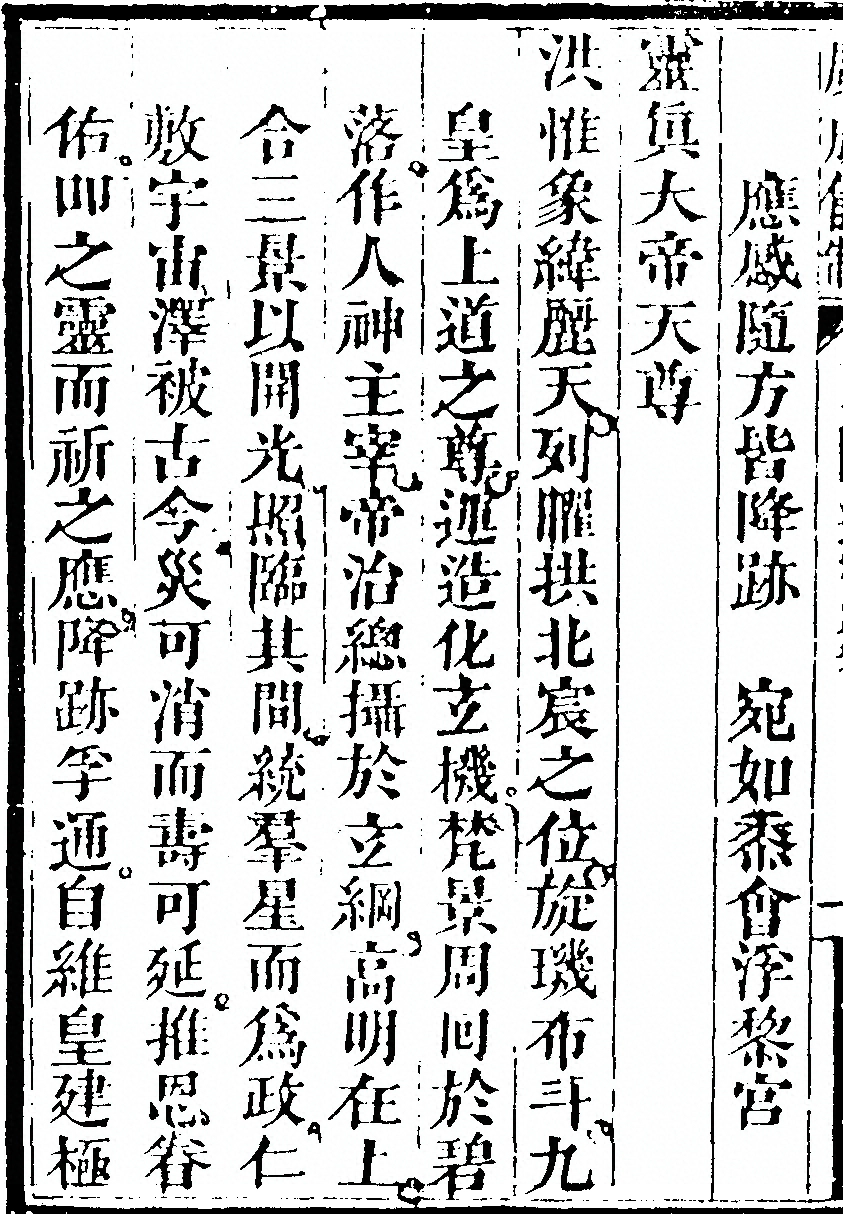 應感隨方皆降跡　宛如黍會浮黎宮
靈兵大帝天尊
洪惟象緯麗天列曜拱北宸之位旋璣布斗九
皇爲上道之尊迎造化立機梵景周回於碧
落作人神主宰帝治總攝於立綱高明在上
合三景以開光照臨其間統羣星而爲政仁
敷宇宙澤被古今災可消而壽可延推恩眷
佑叩之靈而祈之應降跡孚通自維皇建極